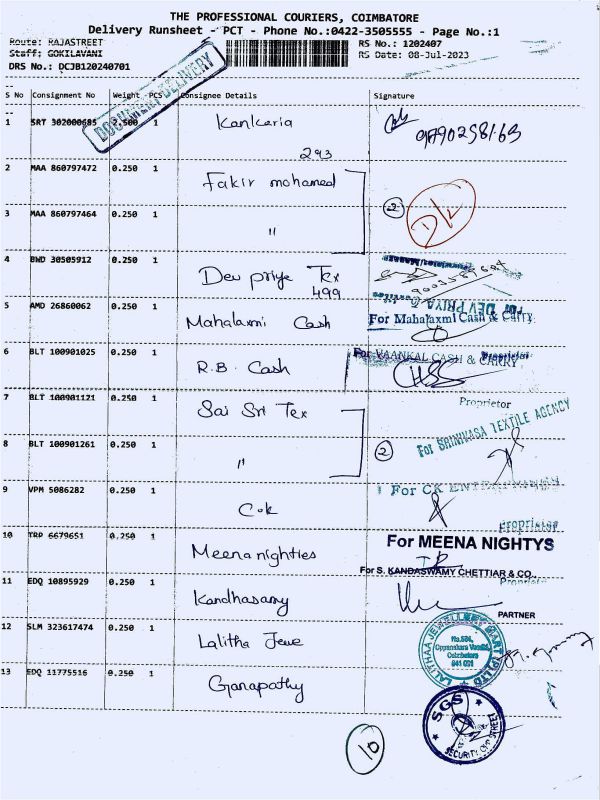 THE PROFESSIONAL COURIERS, COIMBATORE
Delivery Runsheet - PCT - Phone No.:0422-3505555 - Page No.:1
Route: RAJASTREET
RS No.: 1202407
Staff: GOKILAVANI
RS Date: 08-Jul-2023
DRS No.: DCJB120240701
DOCUMENT DELIVERY
S No Consignment No Weight PCS Consignee Details Signature
1 SRT 302000685 2.500 1 Kankaria 9790258163
293
2 MAA 860797472 0.250 1 Fakir mohamed
2 D/L
3 MAA 860797464 0.250 1 "
4 BWD 30505912 0.250 1 Dev priye Tex
499
For DEV PRIYA
5 AMD 26860062 0.250 1 Mahalaxmi Cash For Mahalaxmi Cash & Carry
6 BLT 100901025 0.250 1 R.B. Cash For VAANKAL CASH & CARRY
Proprietor
7 BLT 100901121 0.250 1 Sai Sri Tex
Proprietor
For SRINIVASA TEXTILE AGENCY
8 BLT 100901261 0.250 1 " 2
9 VPM 5086282 0.250 1 C.K For CK
Proprietor
10 TRP 6679651 0.250 1 Meena nighties For MEENA NIGHTYS
For S. KANDASWAMY CHETTIAR & CO.,
11 EDQ 10895929 0.250 1 Kandhasamy
PARTNER
12 SLM 323617474 0.250 1 Lalitha Jewe
LALITHAA JEWELLERY MART (P) LTD
No.584,
Oppanakara Street,
Coimbatore
641 001
13 EDQ 11775516 0.250 1 Ganapathy
SGS
SECURITY
STREET
10